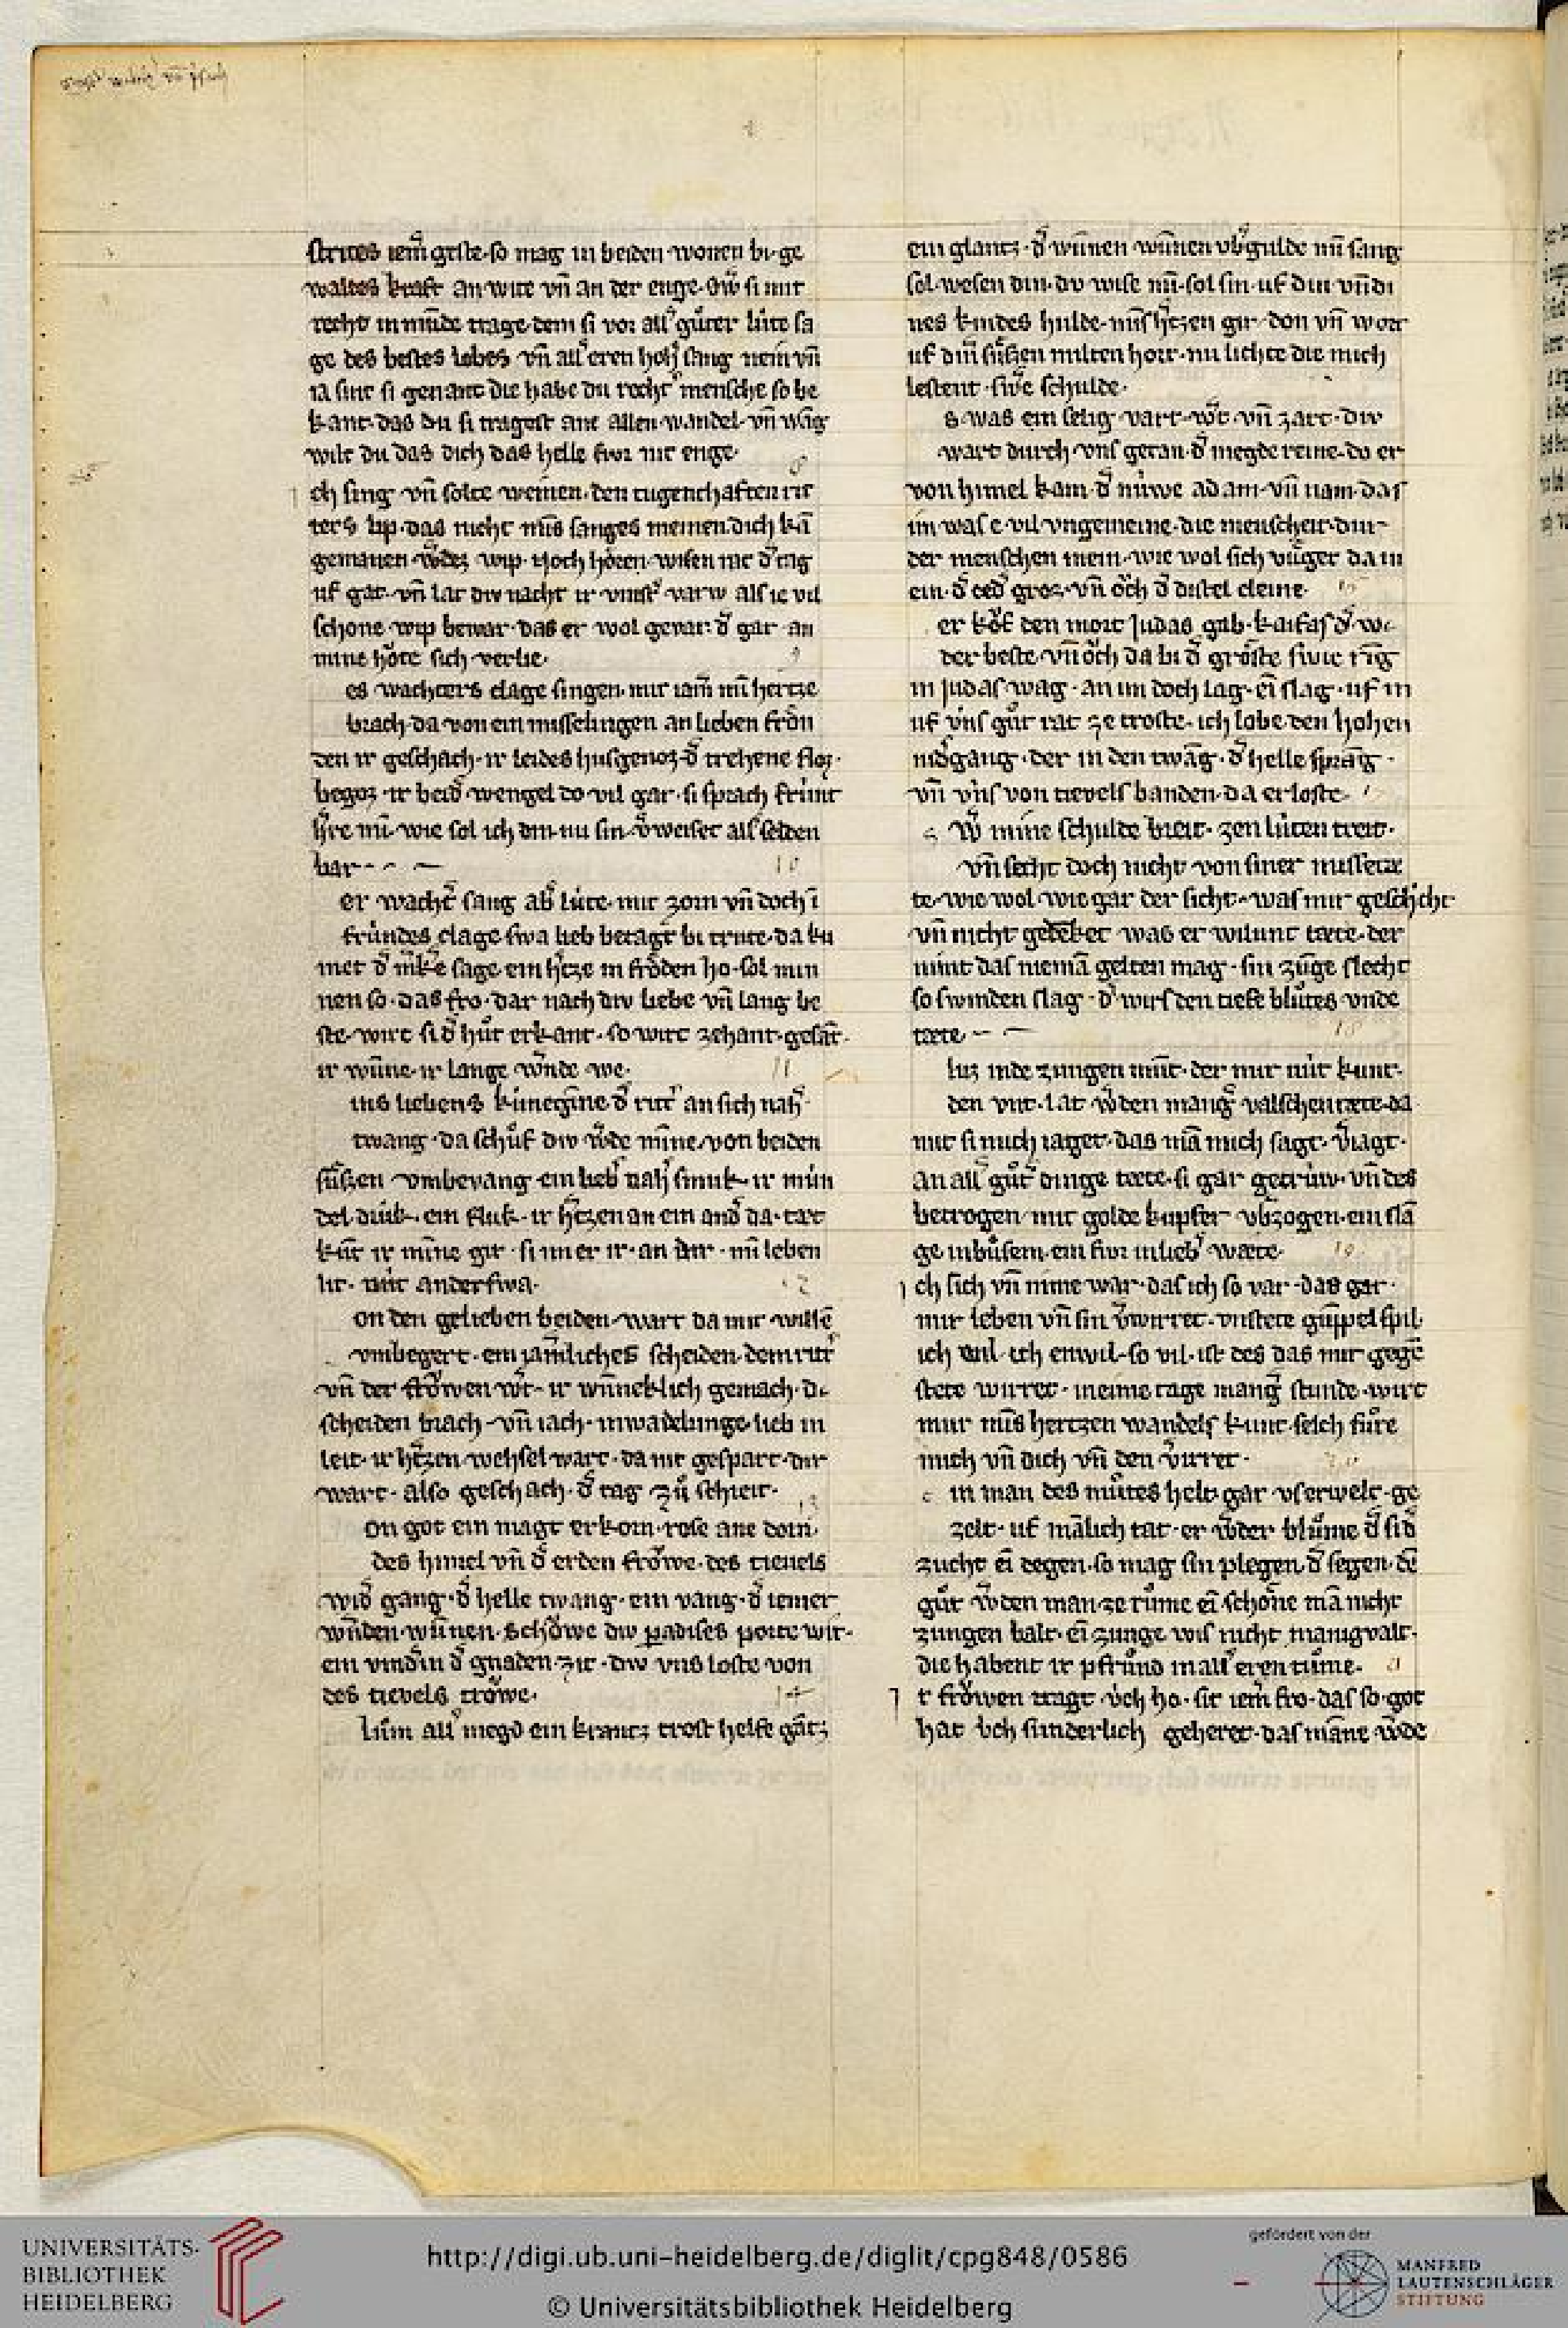 strites iem̄ geste·so mag in beiden wonen bi·ge
waltes kraft an wite vn̄ an der enge·
recht in mūde trage·dem si vor all' gůter lúte sa
ge des bestes lobes vn̄ all' eren hort sang nein vn̄
ia sint si genant die habe du recht' mensche so be
kant·das du si tragest ane allen wandel·vn̄ wāg
wilt du das dich das helle fivr nit enge·
ch sing vn̄ solte weinen·den tugenthaften rit
ters lip·das nicht mīs sanges meinen·dich kā
gemanen w̾dez wip·noch hôren·wisen rat d̾ tag
uf gat·vn̄ lat div nacht ir vinst' varw als ie vil
schone wip bewar·das er wol gevar·d̾ gar an
mine hôte sich verlie·
es wachters clage singen·mir iam̄ mī hertze
brach·da von ein misselingen an lieben frôn
den ir geschach·ir leides husgenoz·d̾ trehene floz·
begoz·ir beid̾ wengel do vil gar·si sprach frúnt
h̾re mī·wie sol ich din·nu sin·v̾weiset als selden
bar
er wacht̾ sang ab̾ lúte·mir zorn vn̄ doch ī
frúndes clage·swa lieb betagt bi trute·da ku
met d̾ m̾ke sage·ein h̾tze in frôden ho·sol min
nen so·das fro·dar nach div liebe vn̄ lang be
ste·wirt si d̾ hůt erkant·so wirt zehant·gesāt·
ir wūne·ir lange w̾nde we·
ins liebens kúneginne·d̾ rit' an sich nah̾
twang·da schůf div w̾de mīne·von beiden
sůssen vmbevang·ein lieb' nah' smuk·ir mún
del druk·ein fluk·ir h̾tzen an ein and̾ da·tat
kūt ir mīne gir·si in er ir·an dir·mī leben
lit·nút anderswa·
on den gelieben beiden·wart da mit willē
vmbegert·ein jam̄liches scheiden·dem rit'
vn̄ der frôwen w̾t·ir wūneklich gemach·di
scheiden brach·vn̄ iach·in wādelunge·lieb in
leit·ir h̾tzen wehsel wart·da nit gespart·dir
wart·also geschach·d̾ tag zů schreit·
on got ein magt erkorn·rose ane dorn·
des himel vn̄ d̾ erden frôwe·des tieuels
wid̾ gang·d̾ helle twang·ein vang·d̾ iemer
w̄nden wūnen·schôwe div padises porte wit·
ein vindin d̾ gnaden·zit·div vns loste von
des tievels trôwe·
lům all' megd ein krantz trost helfe gātz
ein glantz·d̾ wūnen wūnen vb̾gulde mī sang
sol·wesen din·dv wise mī·sol sin·uf din vn̄ di
nes kindes hulde·mīs h̾tzen gir·don vn̄ wort
uf dīn sůssen milten hort·nu lichte die mich
lestent·swe schulde·
s was ein selig vart·w̾t·vn̄ zart·div
wart durch vns getan·d̾ megde reine·do er
von himel kam·d̾ núwe adam·vn̄ nam·das
im was e·vil vngemeine·die menscheit·
der menschen mein·wie wol sich
ein·d̾ ced̾ groz·vn̄ ôch d̾ distel cleine·
er kôf den mort judas gab·kaifas d̾ wi
der beste·vn̄ ôch da bi d̾ grôste swie rīg
in judas wag·an im doch lag·eī slag·uf in
uf vns gůt rat ze troste·ich lobe den hohen
nid̾gang·der in den twāg·d̾ helle sprāg·
vn̄ vns von tievels banden·da erloste·
w̾ mine schulde breit·zen lúten treit·
vn̄ secht doch nicht von siner misseta
te·wie wol·wie gar der sicht·was mir geschicht
vn̄ nicht gedēket was er wilunt tæte·der
nimt das niemā gelten mag·sin zūge slecht
so swinden slag·d̾ wirs den tiefe blůtes vnde
tæte
luz in de zungen mūt·der mir nút kunt·
den vnt·lat w̾den mang̾ valschen tæte·da
mit si mich iaget·das mā mich sagt·v̾iagt·
an all' gůt' dinge tæte·si gar getrúw·vn̄ des
betrogen mit golde kupfer vb̾zogen·ein slā
ge in bůsem·ein fivr in lieb' wæte·
ch sich vn̄ nime war·das ich so var·das gar·
mir leben vn̄ sin v̾wirret·vnstete gūppelspil·
ich wil·ich enwil·so vil·ist des das mir gegē
stete wirret·meine tage mang̾ stunde·wirt
mir mīs hertzen wandels kunt·selch fůre
mich vn̄ dich vn̄ den v̾irret·
in man des můtes helt·gar vserwelt·ge
zelt·uf mālich tat·er w̾der blůme d̾ sid̾
zucht eī degen·so mag sin plegen·d̾ segen·dē
gůt w̾den man ze růme eī schône mā nicht
zungen balt·eī zunge wis nicht manigvalt·
die habent ir pfrůnd in all' eren tůme·
t frôwen tragt v́ch ho·sit iem̄ fro·das so·got
hat v́ch sunderlich geheret·das māne w̾de
UNIVERSITÄTS-
BIBLIOTHEK
HEIDELBERG
http://digi.ub.uni-heidelberg.de/diglit/cpg848/0586
© Universitätsbibliothek Heidelberg
gefördert von der
MANFRED
LAUTENSCHLÄGER
STIFTUNG